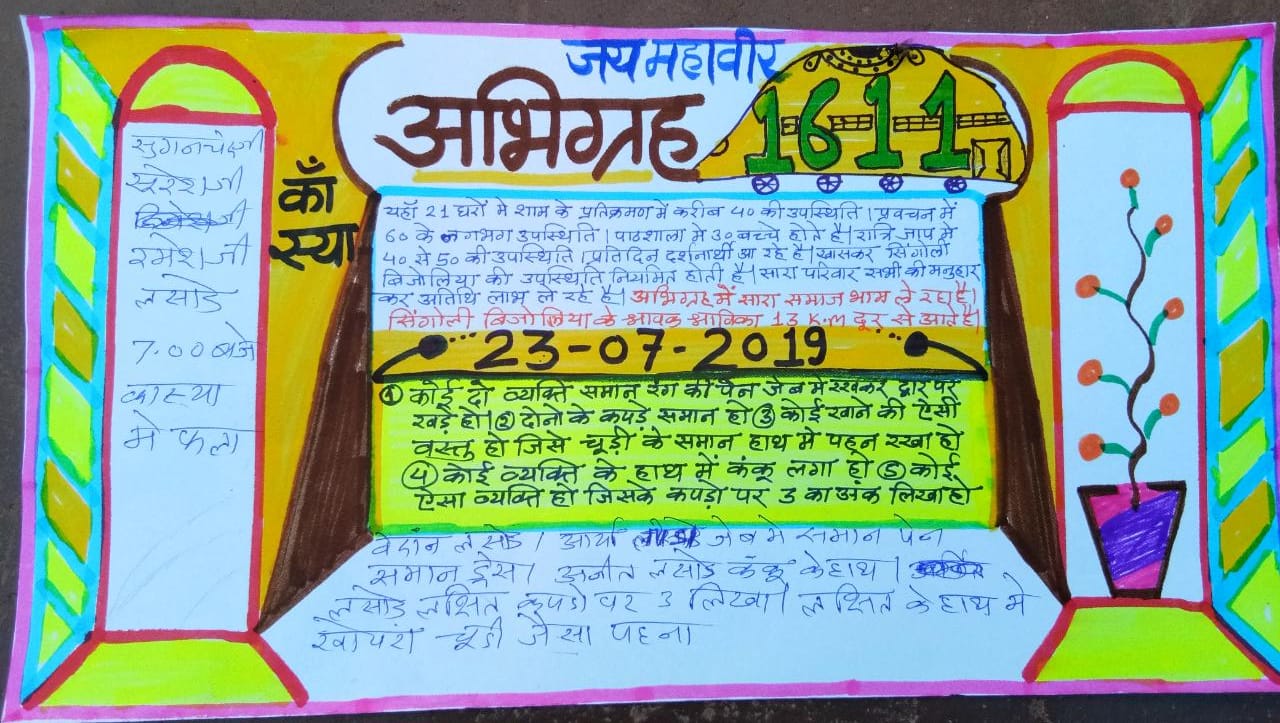 जय महावीर
अभिग्रह
1611
काँ
स्या
सुगनचंदजी
सुरेशजी
रमेशजी
लसोड
7.00 बजे
कास्या
मे फला
यहाँ 21 घरों मे शाम के प्रतिक्रमण में करीब 40 की उपस्थिति। प्रवचन में
60 के लगभग उपस्थिति। पाठशाला मे 30 बच्चे होते है। रात्रि जाप में
40 से 50 की उपस्थिति। प्रतिदिन दर्शनार्थी आ रहे है। खासकर सिंगोली
बिजोलिया की उपस्थिति नियमित होती है। सारा परिवार सभी की मनुहार
कर अतिथि लाभ ले रहे है। अभिग्रह में सारा समाज भाग ले रहा है।
सिंगोली बिजोलिया के श्रावक श्राविका 13 K.M दूर से आते है।
23-07-2019
① कोई दो व्यक्ति समान रंग की पेन जेब मे रखकर द्वार पर
खड़े हो। ② दोनो के कपड़े समान हो ③ कोई खाने की ऐसी
वस्तु हो जिसे चूड़ी के समान हाथ मे पहन रखा हो
④ कोई व्यक्ति के हाथ में कंकू लगा हो ⑤ कोई
ऐसा व्यक्ति हो जिसके कपड़ो पर 3 का अंक लिखा हो
लसोड। आर्या जेब मे समान पेन
समान ड्रेस। अनीत लसोड कंकू के हाथ।
लसोड लक्षित कपडो पर 3 लिखा। लक्षित के हाथ मे
चूडी जैसा पहना